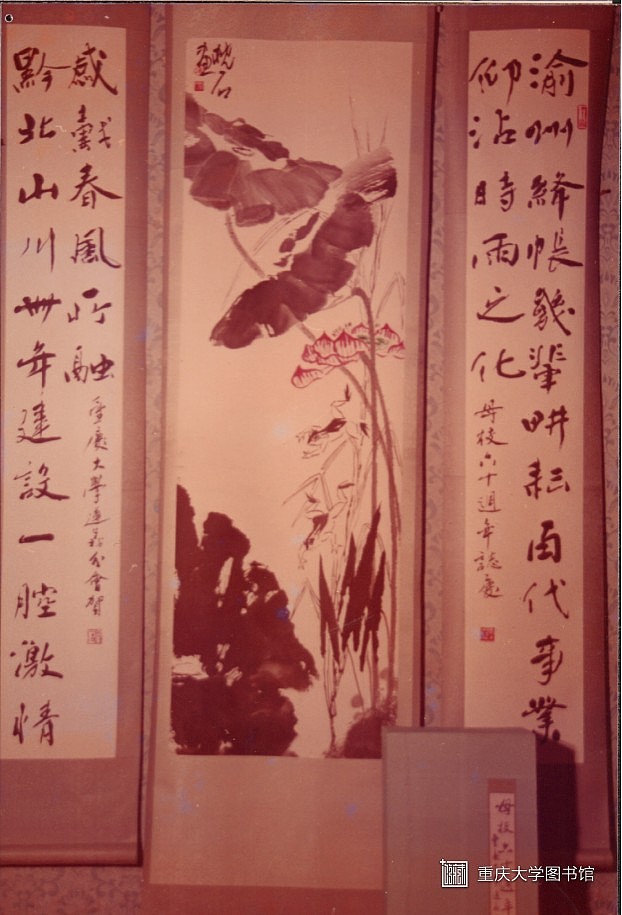 渝州絳帳幾輩畊耘百代事業
仰沾時雨之化
母校六十週年誌慶
枕石
畫
黔北山川卌年建設一腔激情
感戴春風所融
重慶大學遵義分會賀
母校六
重庆大学图书馆